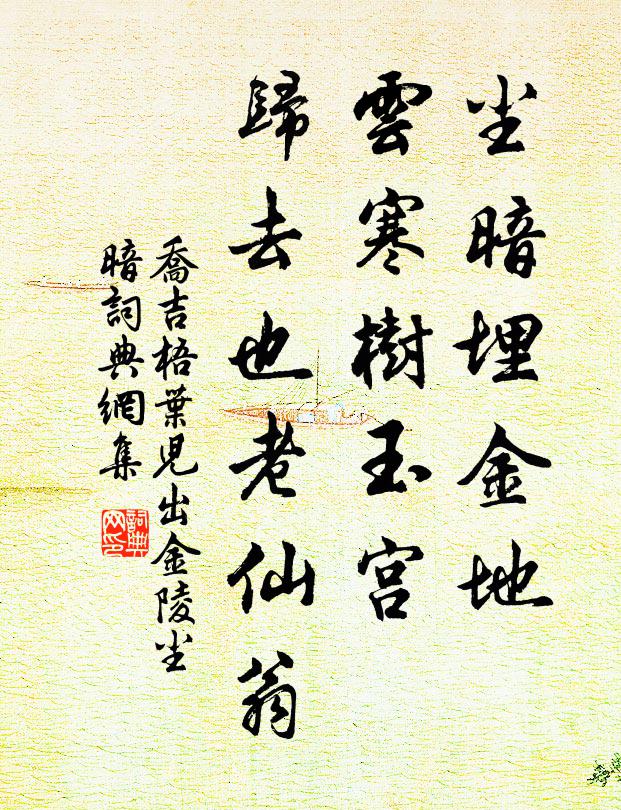 尘暗埋金地
雲寒樹玉宮
歸去也老仙翁
喬吉梧葉児出金陵尘
暗詞典網集
詞典
网印